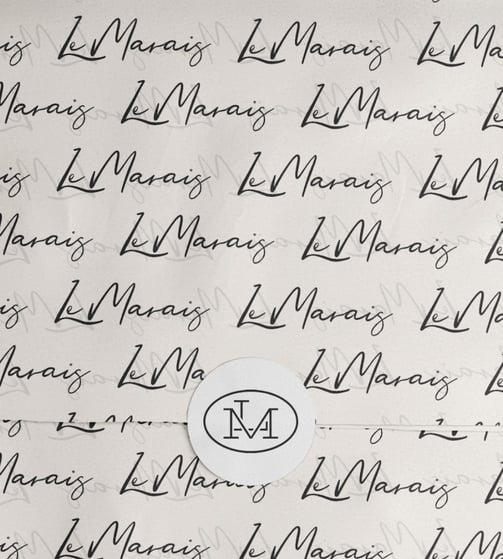 Le Marais Le Marais Le Ma
Marais Le Marais Le Marais
Le Marais Le Marais Le Ma
Marais Le Marais Le Marais
Le Marais Le Marais Le Ma
Marais Le Ma Le Marais
LM
Marais Le Marais Le Marais
Le Marais Le Marais Le Ma